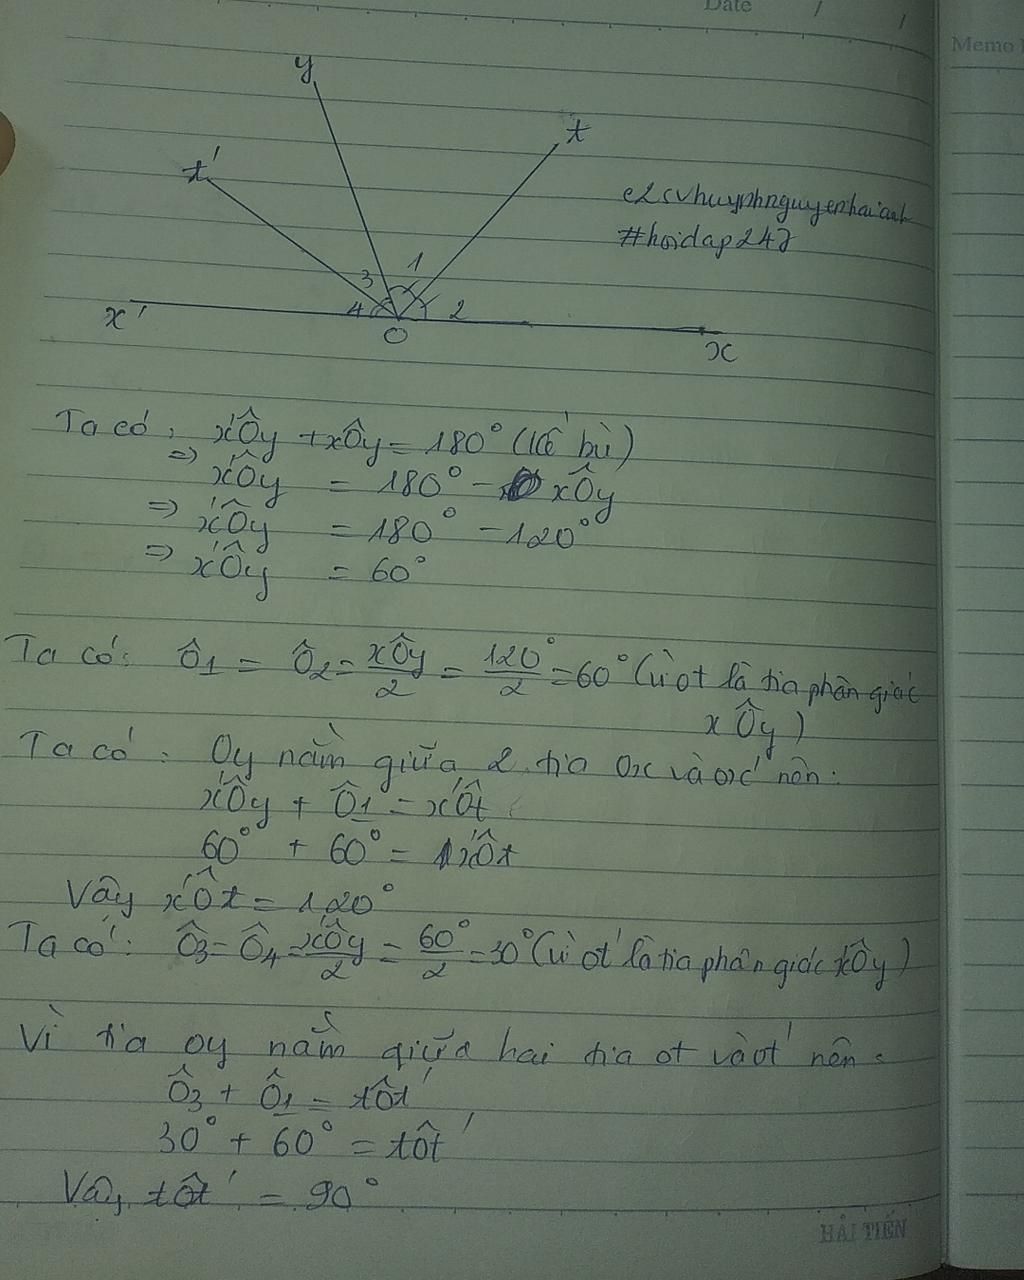 Date / /
Memo
y
t
t'
e2cvhuynhnguyenhaianh
#hoidap247
1
3
4
2
x'
O
x
Ta có: x'Ôy + xÔy = 180° (kề bù)
=> x'Ôy = 180° - xÔy
=> x'Ôy = 180° - 120°
=> x'Ôy = 60°
Ta có: Ô1 = Ô2 = xÔy/2 = 120°/2 = 60° (vì ot là tia phân giác
xÔy)
Ta có: Oy nằm giữa 2 tia Ox và ox' nên:
x'Ôy + Ô1 = x'Ôt
60° + 60° = x'Ôt
Vậy x'Ôt = 120°
Ta có: Ô3 = Ô4 = x'Ôy/2 = 60°/2 = 30° (vì ot' là tia phân giác x'Ôy)
Vì tia oy nằm giữa hai tia ot và ot' nên:
Ô3 + Ô1 = tÔt'
30° + 60° = tÔt'
Vậy tÔt' = 90°
HẢI TIẾN